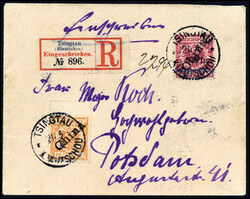 Einschreiben
Tsingtau
(Kiautschou)
Eingeschrieben.
№ 896.
R
TSINGTAU
KIAUTSCHOU
Frau Major Koch
Hochwohlgeboren
TSINGTAU
KIAUTSCHOU
Potsdam
Augustastr. 41